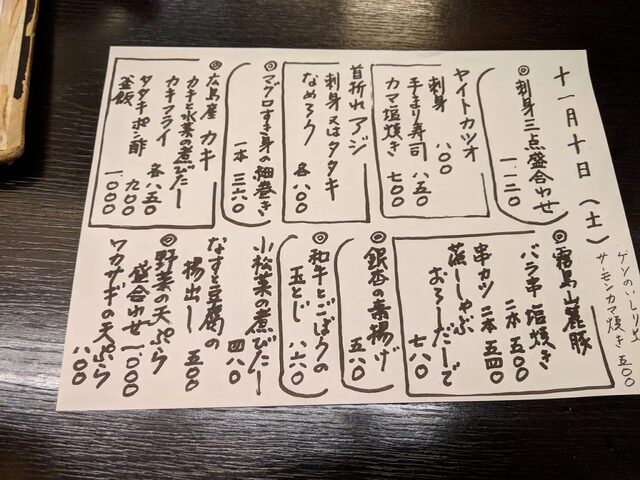 十一月十日（土）
ゲソのいしり
サーモンカマ焼き 五〇〇
◎刺身三点盛合わせ
一、一二〇
ヤイトカツオ
刺身 八〇〇
手まり寿司 八五〇
カマ塩焼き 七〇〇
首折れアジ
刺身又はタタキ
なめろう 各八〇〇
◎マグロすき身の細巻き
一本 三六〇
◎広島産 カキ
カキと水菜の煮びたし
カキフライ 各八五〇
タタキポン酢 九〇〇
釜飯 一、〇〇〇
◎霧島山麓豚
バラ串塩焼き
二本 五〇〇
串カツ 二本 五四〇
蒸ししゃぶ
おろしだしで
七八〇
◎銀杏の素揚げ
◎和牛とごぼうの
玉とじ 八六〇
小松菜の煮びたし
四八〇
なすと豆腐の
揚出し 五〇〇
◎野菜の天ぷら
盛合わせ 一、〇〇〇
ワカサギの天ぷら
八〇〇